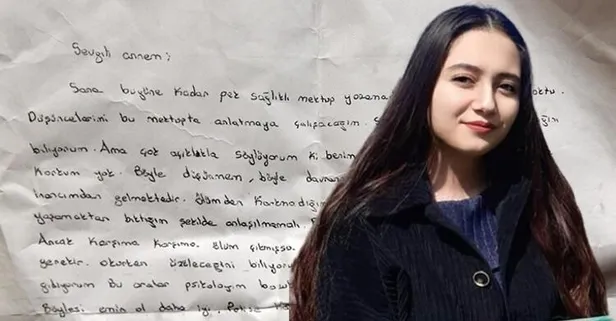 Sevgili annem;
Sana bugüne kadar pek sağlıklı mektup yazama
Düşüncelerimi bu mektupta anlatmaya çalışacağım.
biliyorum. Ama çok açıklıkla söylüyorum ki benim
Korkum yok. Böyle düşünmem, böyle davran
inancımdan gelmektedir. Ölümden korkmadığım
yaşamaktan bıktığım şekilde anlaşılmamalı.
Ancak karşıma ölüm çıkmışsa
gerekir. okurken üzüleceğini biliyor
gidiyorum bu aralar psikolojim bozuk
Böylesi emin ol daha iyi.